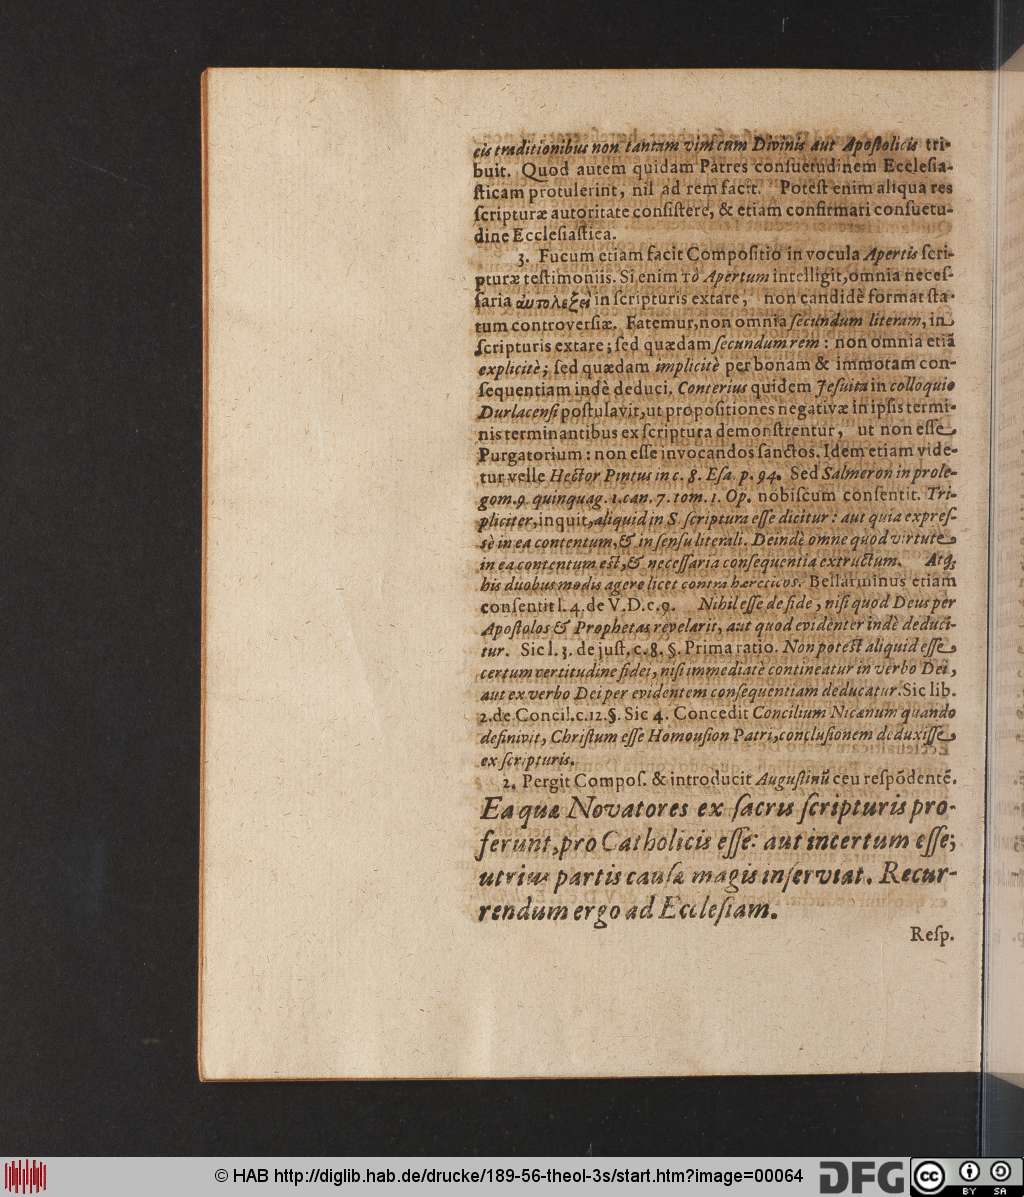 cis traditionibus non tantam vim cum Divinis aut Apostolicis tri-
buit. Quod autem quidam Patres consuetudinem Ecclesia-
sticam protulerint, nil ad rem facit. Potest enim aliqua res
scripturæ autoritate consistere, & etiam confirmari consuetu-
dine Ecclesiastica.
3. Fucum etiam facit Compositio in vocula Apertis scri-
pturæ testimoniis. Si enim τὸ Apertum intelligit, omnia neces-
saria αὐτολεξεὶ in scripturis extare, non candidè format sta-
tum controversiæ. Fatemur, non omnia secundum literam, in
scripturis extare; sed quædam secundum rem: non omnia etiā
explicitè; sed quædam implicitè per bonam & immotam con-
sequentiam indè deduci. Conterius quidem Jesuita in colloquio
Durlacensi postulavit, ut propositiones negativæ in ipsis termi-
nis terminantibus ex scriptura demonstrentur, ut non esse
Purgatorium: non esse invocandos sanctos. Idem etiam vide-
tur velle Hector Pintus in c. 8. Esa. p. 94. Sed Salmeron in prole-
gom. 9. quinquag. 1. can. 7. tom. 1. Op. nobiscum consentit. Tri-
pliciter, inquit, aliquid in S. scriptura esse dicitur: aut quia expres-
sè in ea contentum, & in sensu literali. Deindè omne quod virtute
in ea contentum est, & necessaria consequentia extructum. Atq;
his duobus modis agere licet contra hæreticos. Bellarminus etiam
consentit l. 4. de V. D. c. 9. Nihil esse de fide, nisi quod Deus per
Apostolos & Prophetas revelarit, aut quod evidenter indè deduci-
tur. Sic l. 3. de just. c. 8. §. Prima ratio. Non potest aliquid esse
certum certitudine fidei, nisi immediatè contineatur in verbo Dei,
aut ex verbo Dei per evidentem consequentiam deducatur. Sic lib.
2. de Concil. c. 12. §. Sic 4. Concedit Concilium Nicænum quando
definivit, Christum esse Homousion Patri, conclusionem deduxisse
ex scripturis.
2. Pergit Compos. & introducit Augustinū ceu respōdentē.
Ea quæ Novatores ex sacris scripturis pro-
ferunt, pro Catholicis esse: aut incertum esse;
utrius partis causæ magis inserviat. Recur-
rendum ergo ad Ecclesiam.
Resp.
© HAB http://diglib.hab.de/drucke/189-56-theol-3s/start.htm?image=00064
DFG
cc BY SA